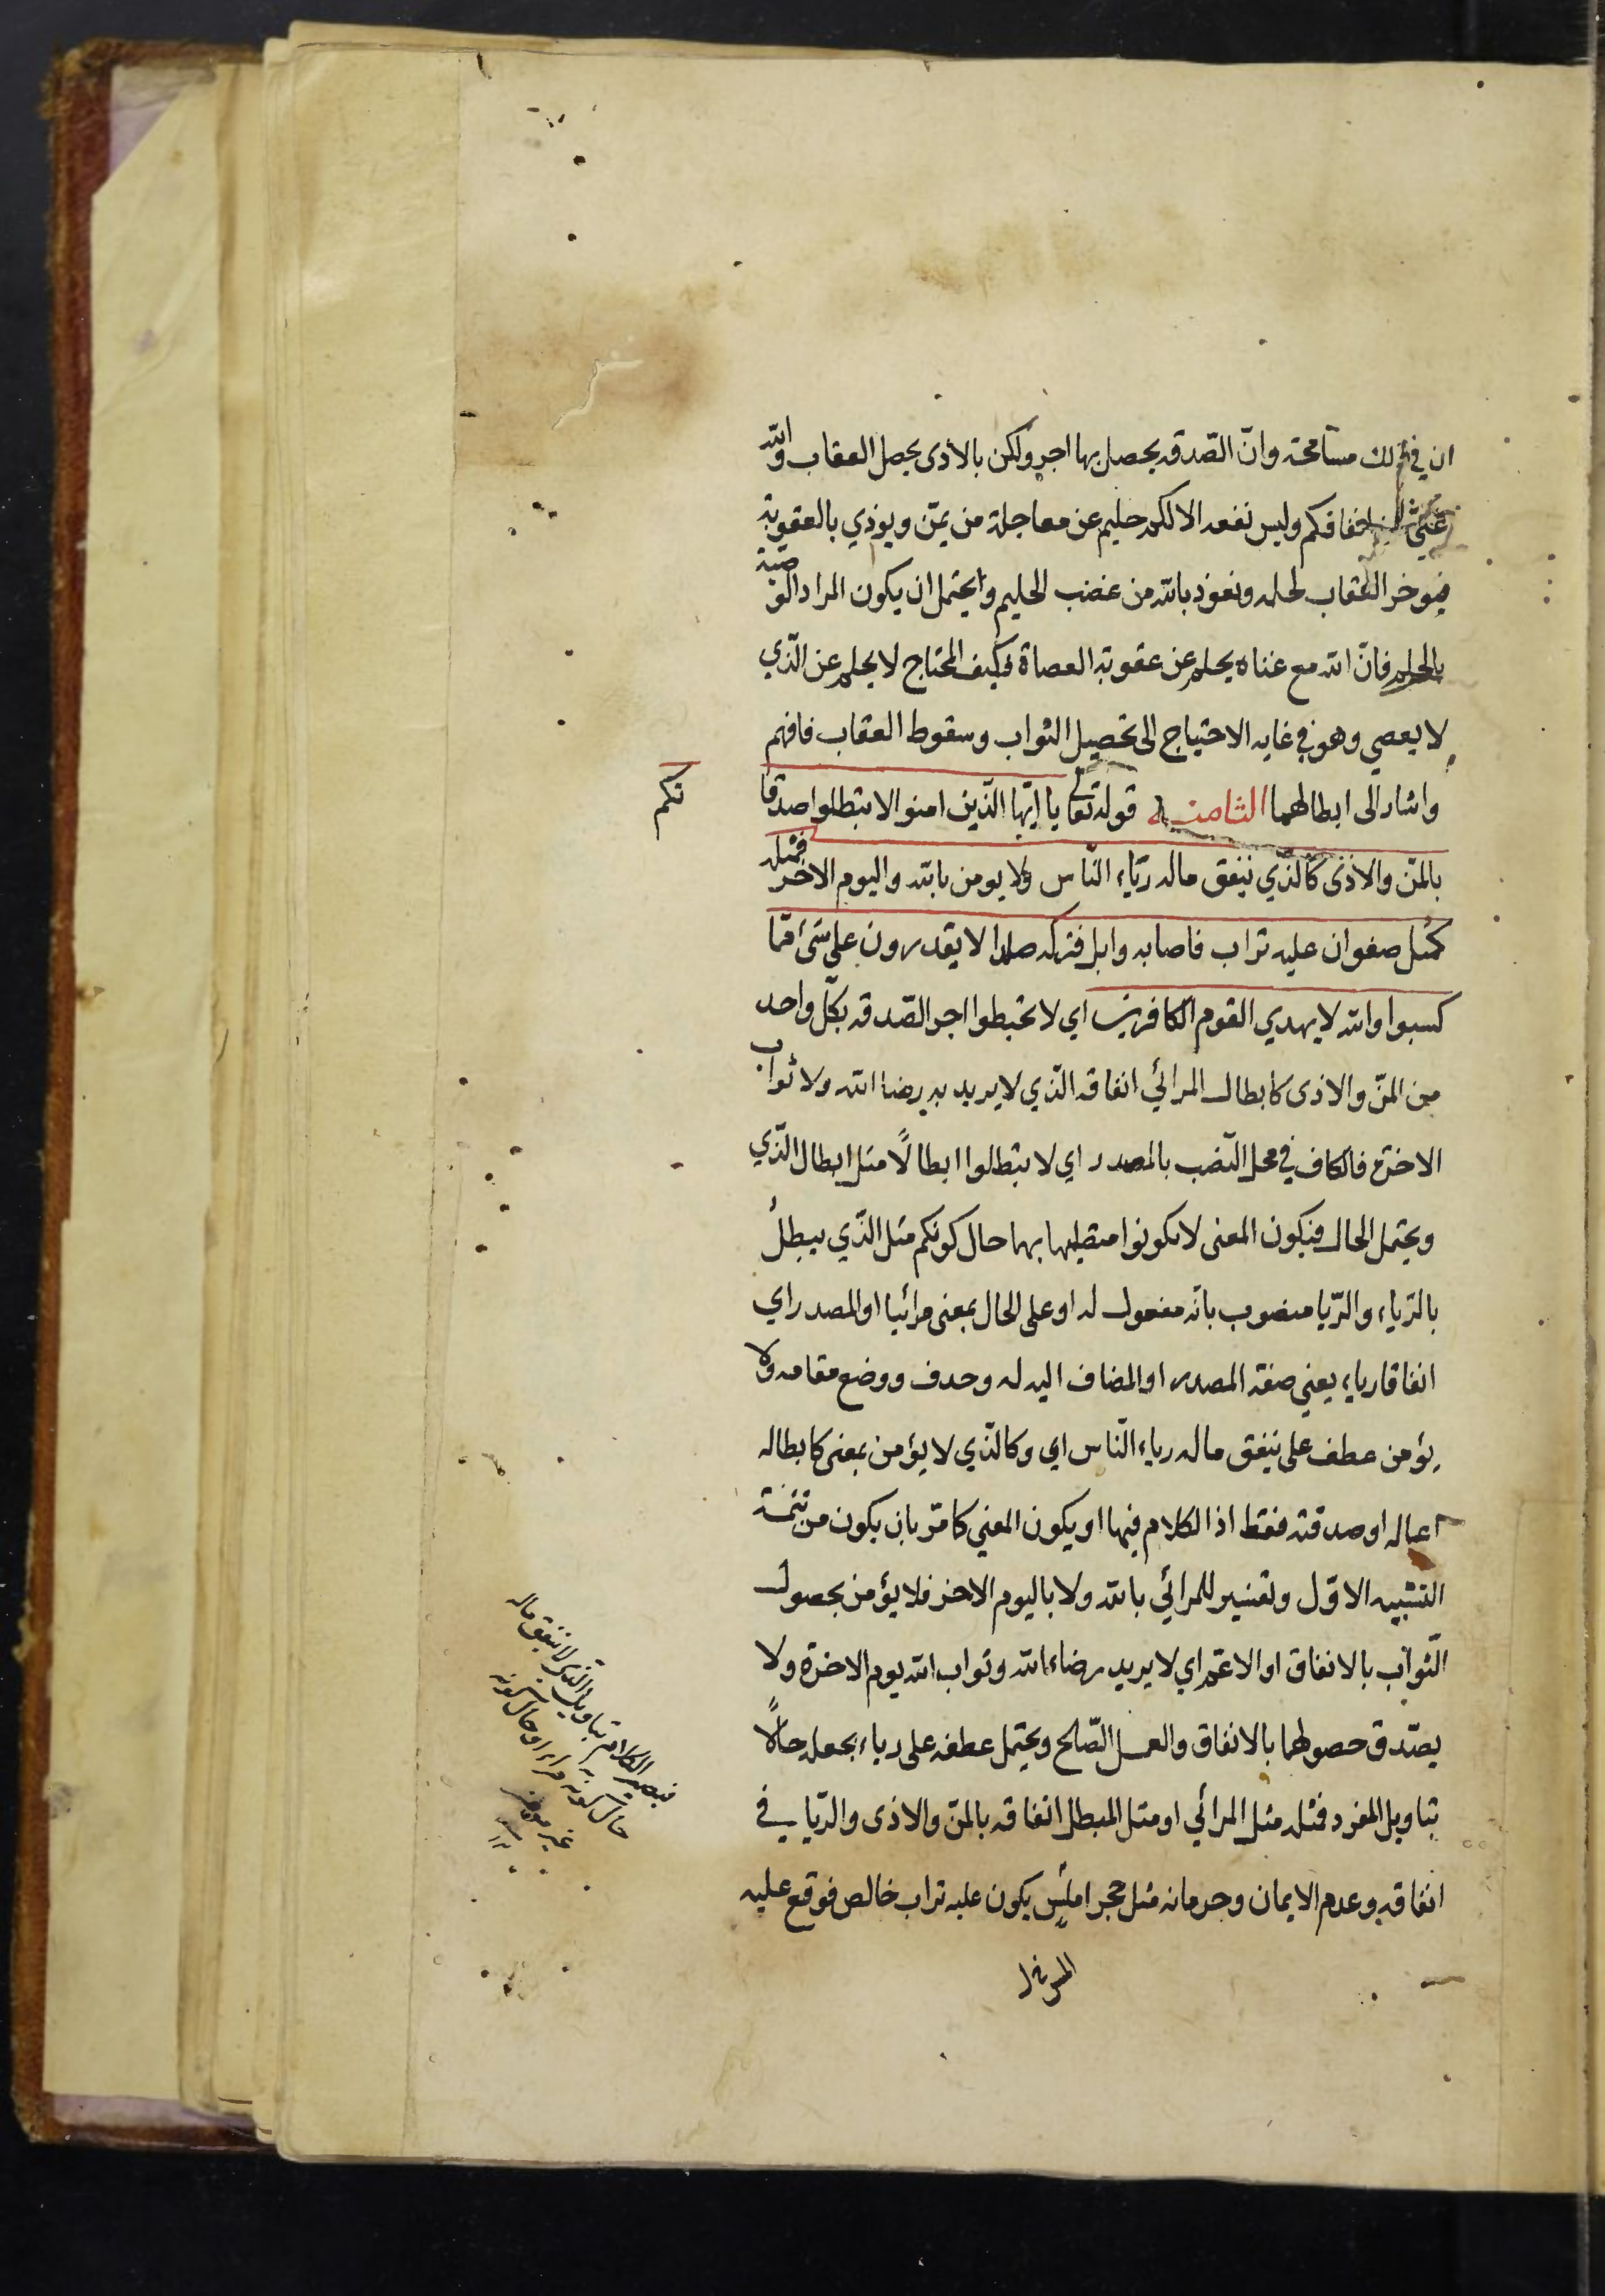 ان في ذلك مسامحة وانّ الصّدقة يحصل بها اجر ولكن بالاذى يحصل العقاب والله
غنيّ عن انفاقكم وليس نفعه الا لكم حليم عن معاجلة من يمّن ويوذي بالعقوبة
فيوخر العقاب لحلمه ونعوذ بالله من غضب الحليم ويحتمل ان يكون المراد الوصية
بالحلم فانّ الله مع غناه يحلم عن عقوبة العصاة فكيف المحتاج لا يحلم عن الّذي
لا يعصي وهو في غاية الاحتياج الى تحصيل الثواب وسقوط العقاب فافهم
واشار الى ابطالهما الثامنة قوله تعالى يا ايّها الّذين امنوا لا تبطلوا صدقا
تكم
بالمنّ والاذى كالّذي ينفق ماله ريّاء النّاس ولا يومن بالله واليوم الاخر فمثله
كمثل صفوان عليه تراب فاصابه وابل فتركه صلدا لا يقدرون على شئ ممّا
كسبوا والله لا يهدي القوم الكافرين اي لا تحبطوا اجر الصّدقة بكلّ واحد
من المنّ والاذى كابطال المرائي انفاقه الّذي لا يريد به رضاء الله ولا ثواب
الاخرة فالكاف في محل النّصب بالمصدر اي لا تبطلوا ابطالًا مثل ابطال الّذي
ويحتمل الحال فيكون المعنى لا تكونوا مبطليها بهما حال كونكم مثل الّذي يبطل
بالرّياء والرّيا منصوب بانّه مفعول له او على الحال بمعنى مرائيا او المصدر اي
انفاقا رياء يعني صفة المصدر او المضاف اليه له وحذف ووضع مقامه ولا
يؤمن عطف على ينفق ماله رياء النّاس اي وكالّذي لا يؤمن بمعنى كابطاله
اعماله او صدقته فقط اذ الكلام فيها او يكون المعني كما مرّ بان يكون من تتمّة
التشبيه الاوّل وتفسير للمرائي بالله ولا باليوم الاخر فلا يؤمن بحصول
الثّواب بالانفاق او الاعمّ اي لا يريد رضاء الله وثواب الله يوم الاخرة ولا
يصّدق حصولهما بالانفاق والعمل الصّالح ويحتمل عطفه على رياء بجعله حالًا
بتاويل المفرد فمثله مثل المرائي او مثل المبطل انفاقه بالمنّ والاذى والرّيا في
انفاقه وعدم الايمان وحرمانه مثل حجر املس يكون عليه تراب خالص فوقع عليه